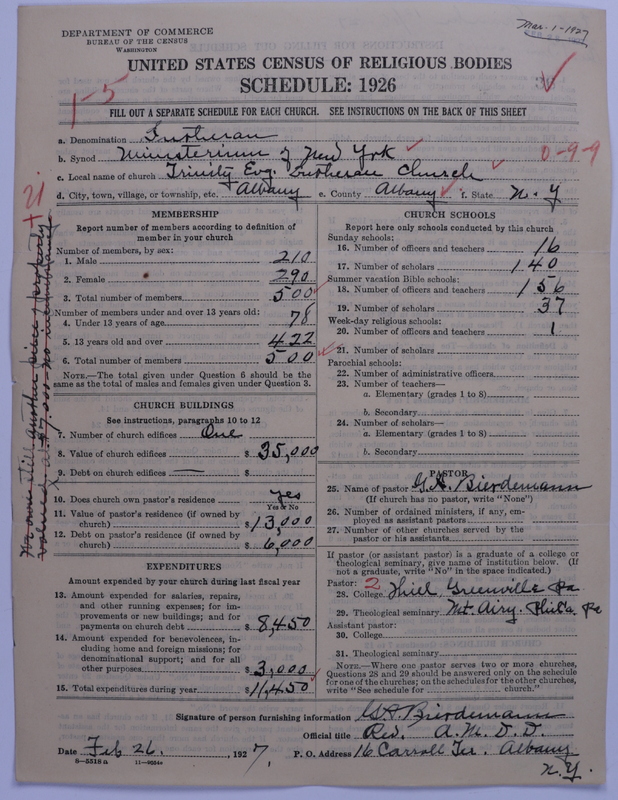 Mar. 1-1927
DEPARTMENT OF COMMERCE
BUREAU OF THE CENSUS
WASHINGTON
UNITED STATES CENSUS OF RELIGIOUS BODIES
SCHEDULE: 1926
1-5
FILL OUT A SEPARATE SCHEDULE FOR EACH CHURCH. SEE INSTRUCTIONS ON THE BACK OF THIS SHEET
a. Denomination Lutheran
b. Synod Ministerium of New York
0-9-9
c. Local name of church Trinity Evg. Lutheran Church
d. City, town, village, or township, etc. Albany e. County Albany f. State N.Y
MEMBERSHIP
Report number of members according to definition of member in your church
Number of members, by sex:
1. Male 210
2. Female 290
3. Total number of members 500
Number of members under and over 13 years old:
4. Under 13 years of age 78
5. 13 years old and over 422
6. Total number of members 500
NOTE.—The total given under Question 6 should be the same as the total of males and females given under Question 3.
CHURCH BUILDINGS
See instructions, paragraphs 10 to 12
7. Number of church edifices One
8. Value of church edifices $ 35,000
9. Debt on church edifices — $
10. Does church own pastor's residence yes
Yes or No
11. Value of pastor's residence (if owned by church) $ 13,000
12. Debt on pastor's residence (if owned by church) $ 6,000
We own still another piece of property
valued at $7,000 - no
EXPENDITURES
Amount expended by your church during last fiscal year
13. Amount expended for salaries, repairs, and other running expenses; for improvements or new buildings; and for payments on church debt $ 8,450
14. Amount expended for benevolences, including home and foreign missions; for denominational support; and for all other purposes $ 3,000
15. Total expenditures during year $ 11,450
CHURCH SCHOOLS
Report here only schools conducted by this church
Sunday schools:
16. Number of officers and teachers 16
17. Number of scholars 140
Summer vacation Bible schools:
18. Number of officers and teachers 156
19. Number of scholars 37
Week-day religious schools:
20. Number of officers and teachers 1
21. Number of scholars
Parochial schools:
22. Number of administrative officers
23. Number of teachers—
a. Elementary (grades 1 to 8)
b. Secondary
24. Number of scholars—
a. Elementary (grades 1 to 8)
b. Secondary
PASTOR
25. Name of pastor G.A. Bierdemann
(If church has no pastor, write "None")
26. Number of ordained ministers, if any, employed as assistant pastors
27. Number of other churches served by the pastor or his assistants
If pastor (or assistant pastor) is a graduate of a college or theological seminary, give name of institution below. (If not a graduate, write "No" in the space indicated.)
Pastor: 2
28. College Thiel, Greenville Pa
29. Theological seminary Mt. Airy. Phil'a Pa
Assistant pastor:
30. College
31. Theological seminary
NOTE.—Where one pastor serves two or more churches, Questions 28 and 29 should be answered only on the schedule for one of the churches; on the schedules for the other churches, write "See schedule for church."
Signature of person furnishing information G.A. Bierdemann
Official title Rev. A.M. D.D.
Date Feb 26. 1927.
P. O. Address 16 Carroll Ter. Albany
N.Y.
8-5518a 11-9054